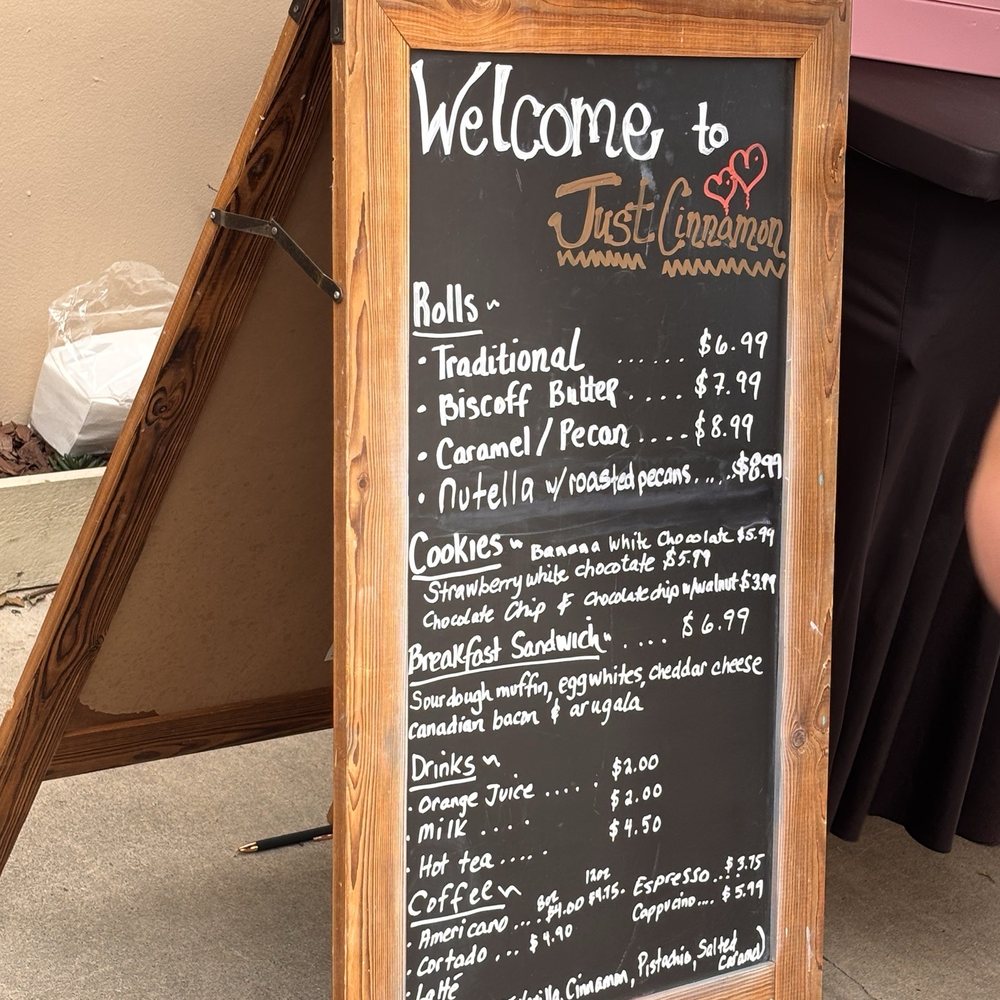 Welcome to
Just Cinnamon
Rolls ~
• Traditional ...... $6.99
• Biscoff Butter .... $7.99
• Caramel/Pecan .... $8.99
• Nutella w/roasted pecans..... $8.99
Cookies ~ Banana White Chocolate $5.99
Strawberry white chocolate $5.99
Chocolate Chip & Chocolate chip w/walnut $3.99
Breakfast Sandwich ~ .... $6.99
Sourdough muffin, egg whites, cheddar cheese
canadian bacon & arugala
Drinks ~
• Orange Juice ..... $2.00
• Milk .... $2.00
• Hot tea ..... $4.50
Coffee ~ 8oz 12oz
• Americano ... $4.00 $4.75 • Espresso ... $3.75
• Cortado ... $4.90 Cappucino .... $5.99
• Latté
Cinnamon, Pistachio, Salted Caramel)